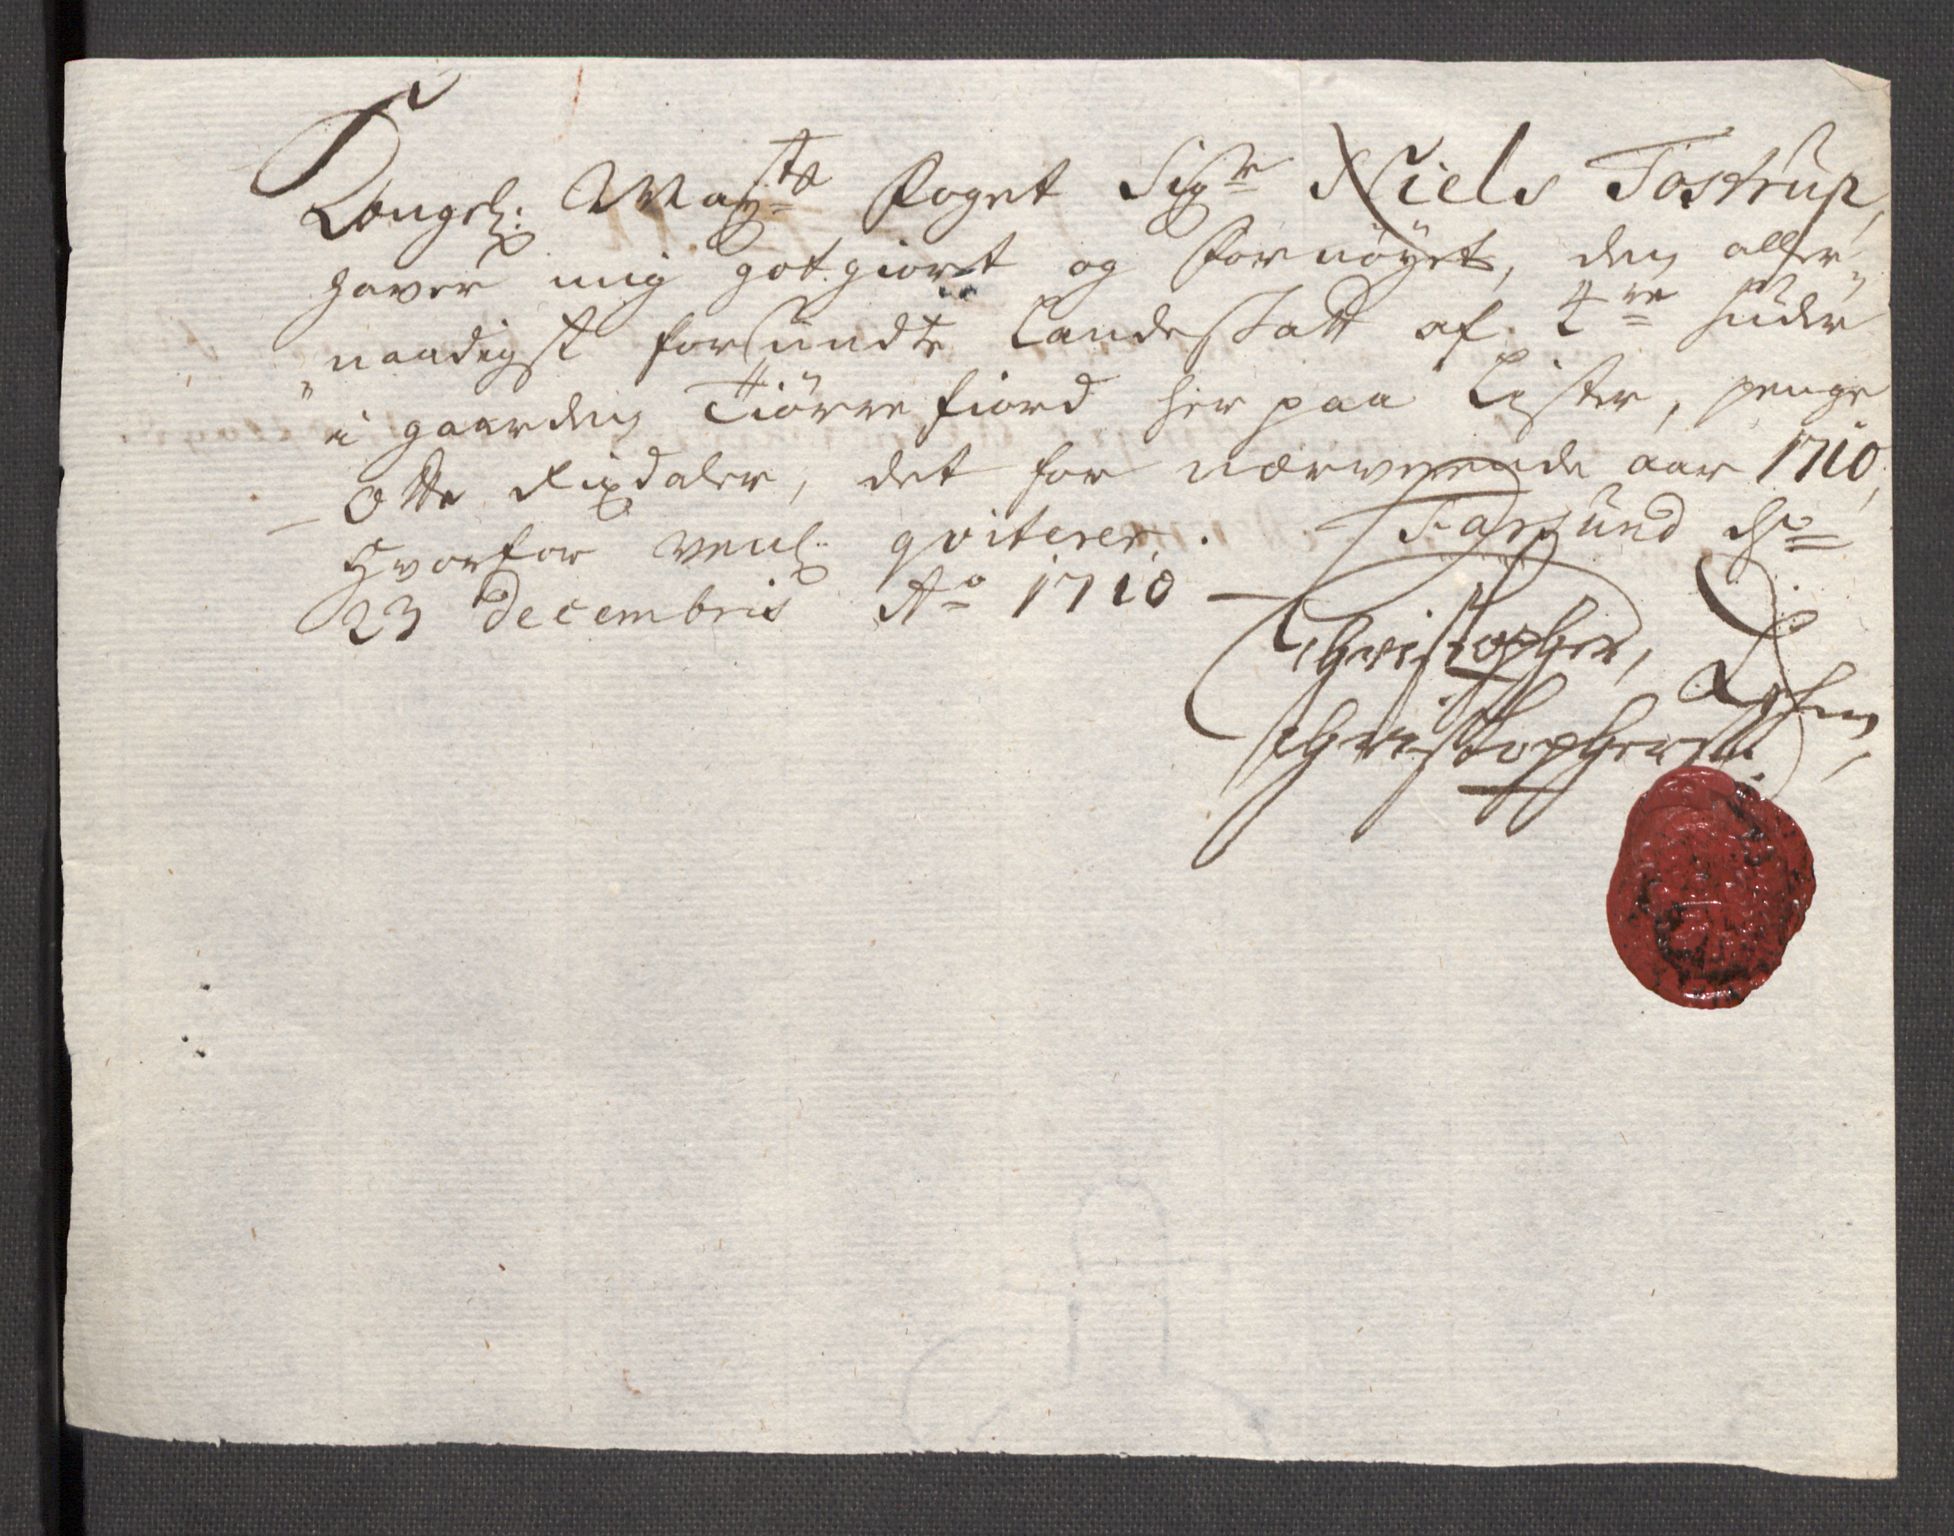 Kongel: May:ts Foget Sigr Niels Tostrup,
haver mig got giort og fornöyet, den aller-
naadigst forundte Landeskatt af 4re huder
i gaarden Tiörrefiord her paa Lister, penge
Otte Rixdaler, det for nærverende aar 1710,
Hvorfor venl: qviterer. Farsund dn
23 decembris Ao 1710
Christopher,
Christophers: